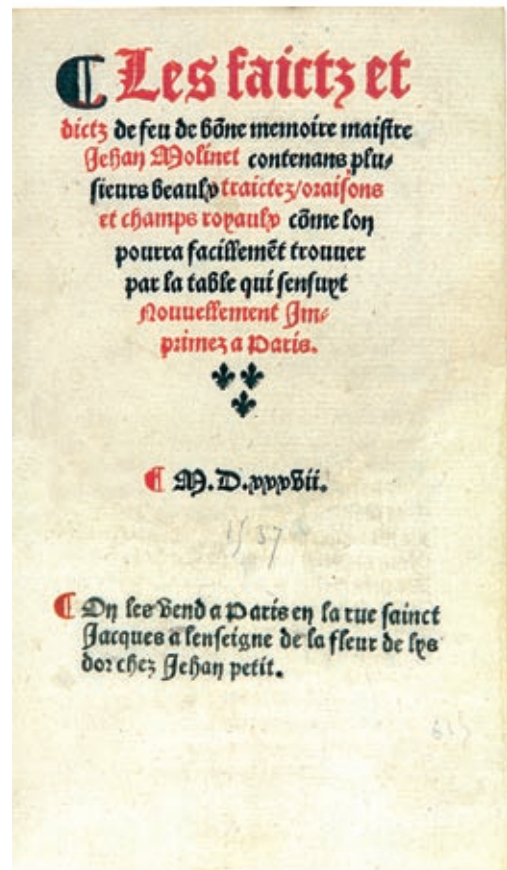 ¶ Les faictz et
dictz de feu de bõne memoire maistre
Jehan Molinet contenans plu-
sieurs beaulx traictez/oraisons
et champs royaulx cõme lon
pourra facillemẽt trouuer
par la table qui sensuyt
Nouuellement Im-
primez a Paris.
¶ M.D.xxxvii.
1537
¶ On les vend a Paris en la rue sainct
Jacques a lenseigne de la fleur de lys
dor chez Jehan petit.